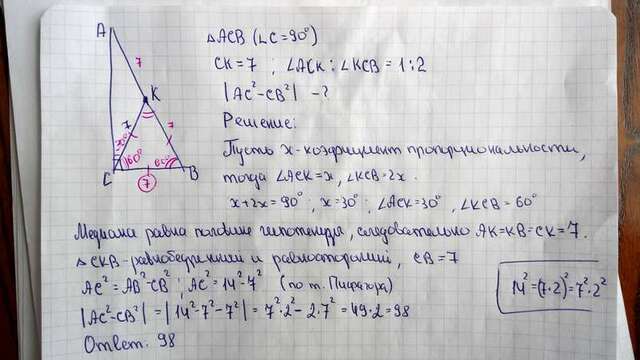 △ACB (∠C=90°)
CK=7 ; ∠ACK : ∠KCB = 1:2
|AC²-CB²| - ?
Решение:
Пусть x - коэффициент пропорциональности,
тогда ∠ACK=x, ∠KCB=2x.
x+2x=90° ; x=30° ; ∠ACK=30° , ∠KCB=60°
Медиана равна половине гипотенузы, следовательно AK=KB=CK=7.
△CKB - равнобедренный и равносторонний, CB=7
AC²=AB²-CB² ; AC²=14²-7² (по т. Пифагора)
|AC²-CB²| = |14²-7²-7²| = 7²·2²-2·7² = 49·2=98
Ответ: 98
14²=(7·2)²=7²·2²
A
7
K
7
7
30°
60°
60°
C
7
B